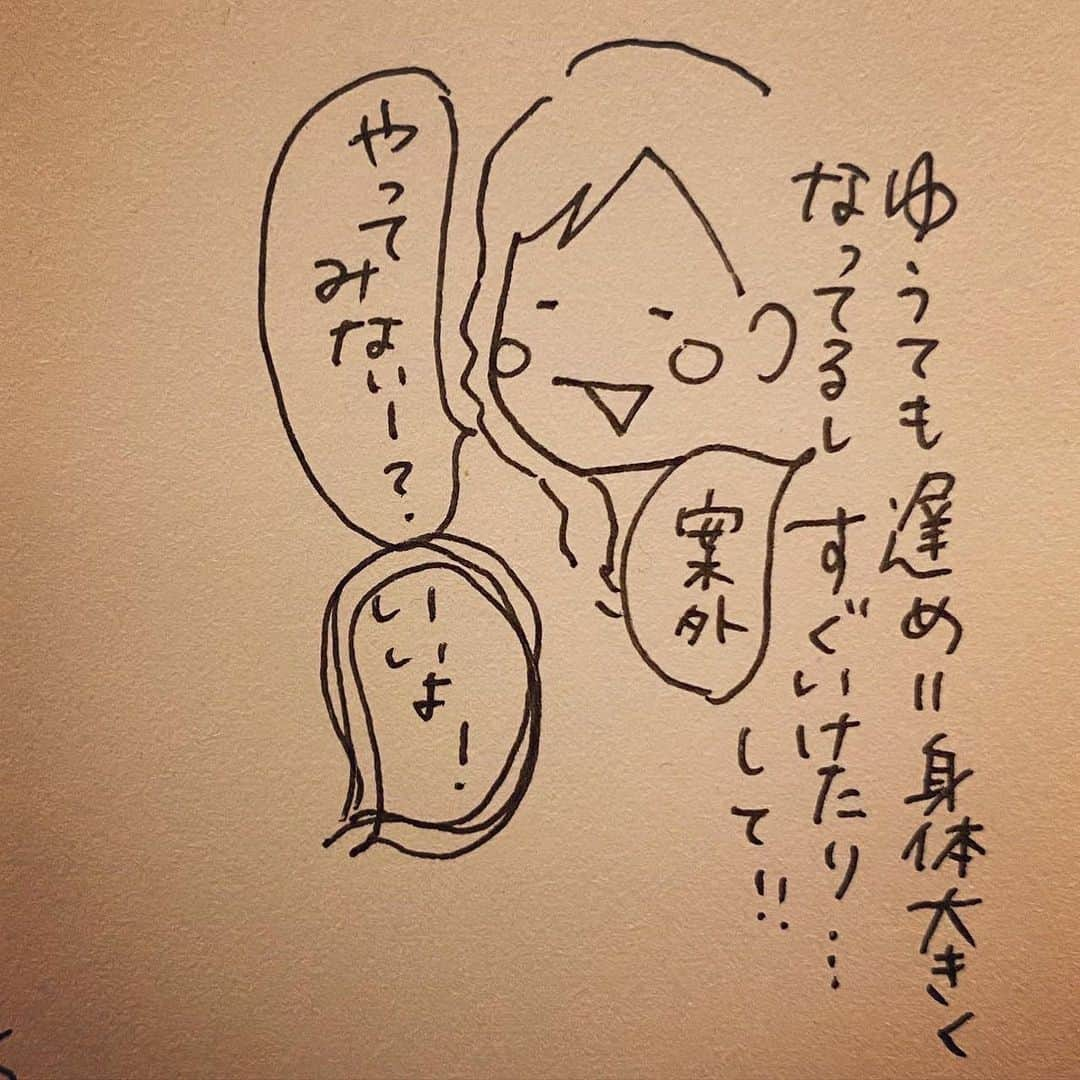 ゆうても遅め=身体大きく
なってるし すぐいけたり…
して!!
案外
やってみないーて.
いーよー!
いい